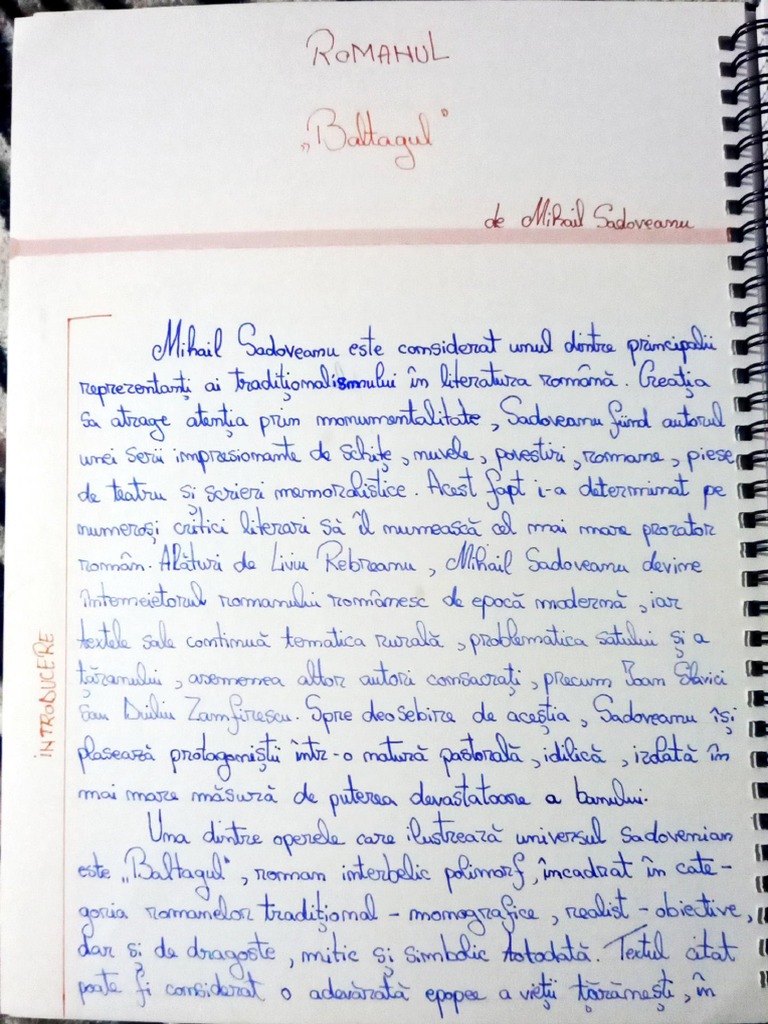 ROMANUL
„Baltagul"
de Mihail Sadoveanu
INTRODUCERE
Mihail Sadoveanu este considerat unul dintre principalii
reprezentanți ai tradiționalismului în literatura română. Creația
sa atrage atenția prin monumentalitate, Sadoveanu fiind autorul
unei serii impresionante de schițe, nuvele, povestiri, romane, piese
de teatru și scrieri memoralistice. Acest fapt i-a determinat pe
numeroși critici literari să îl numească cel mai mare prozator
român. Alături de Liviu Rebreanu, Mihail Sadoveanu devine
întemeietorul romanului românesc de epocă modernă, iar
textele sale continuă tematica rurală, problematica satului și a
țăranului, asemenea altor autori consacrați, precum Ioan Slavici
sau Duiliu Zamfirescu. Spre deosebire de aceștia, Sadoveanu își
plasează protagoniștii într-o natură pastorală, idilică, izolată în
mai mare măsură de puterea devastatoare a banului.
Una dintre operele care ilustrează universul sadovenian
este „Baltagul", roman interbelic polimorf, încadrat în cate-
goria romanelor tradițional - monografice, realist - obiective,
dar si de dragoste, mitic și simbolic totodată. Textul citat
poate fi considerat o adevărată epopee a vieții țărănești, în